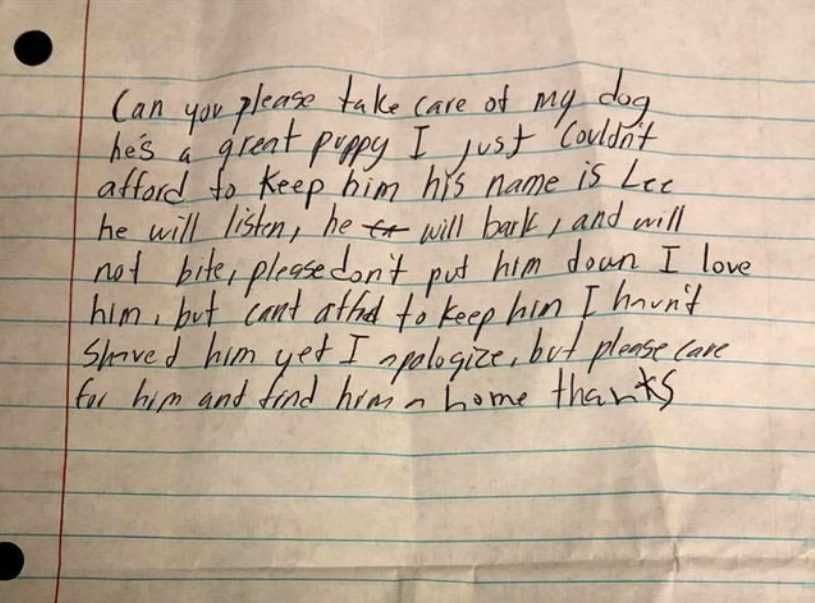 Can you please take care of my dog
he's a great puppy I just couldn't
afford to keep him his name is Lee
he will listen, he will bark, and will
not bite, please don't put him down I love
him, but cant afford to keep him I havn't
Shaved him yet I apologize, but please care
for him and find him a home thanks